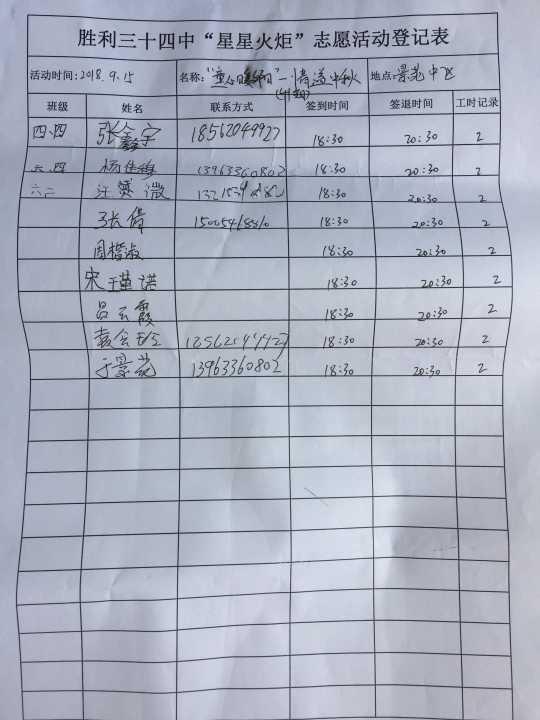 胜利三十四中“星星火炬”志愿活动登记表
活动时间:2018.9.15 名称: 一情送中秋 地点:景苑中区
班级 姓名 联系方式 签到时间 签退时间 工时记录
四.四 张鑫宇 18562049927 18:30 20:30 2
六.四 杨佳 13963360802 18:30 20:30 2
六二 汪 18:30 20:30 2
18:30 20:30 2
周楷淑 18:30 20:30 2
宋于瑾诺 18:30 20:30 2
吕云霞 18:30 20:30 2
袁会 18562049927 18:30 20:30 2
于景花 13963360802 18:30 20:30 2